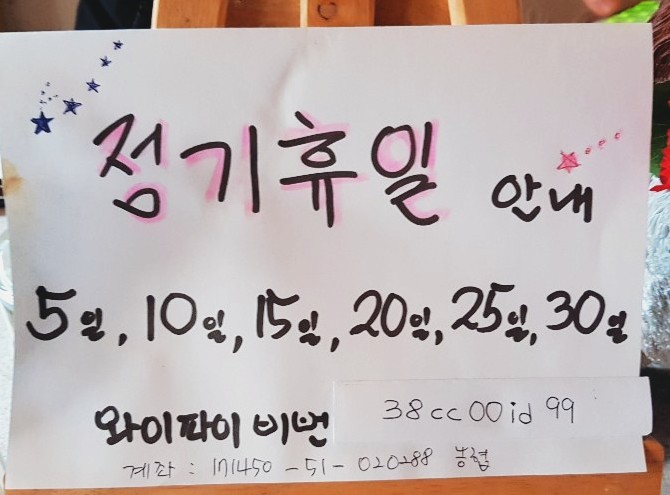 정기휴일 안내
5일, 10일, 15일, 20일, 25일, 30일
와이파이 비번 38cc00id99
계좌 : 171450-51-020288 농협